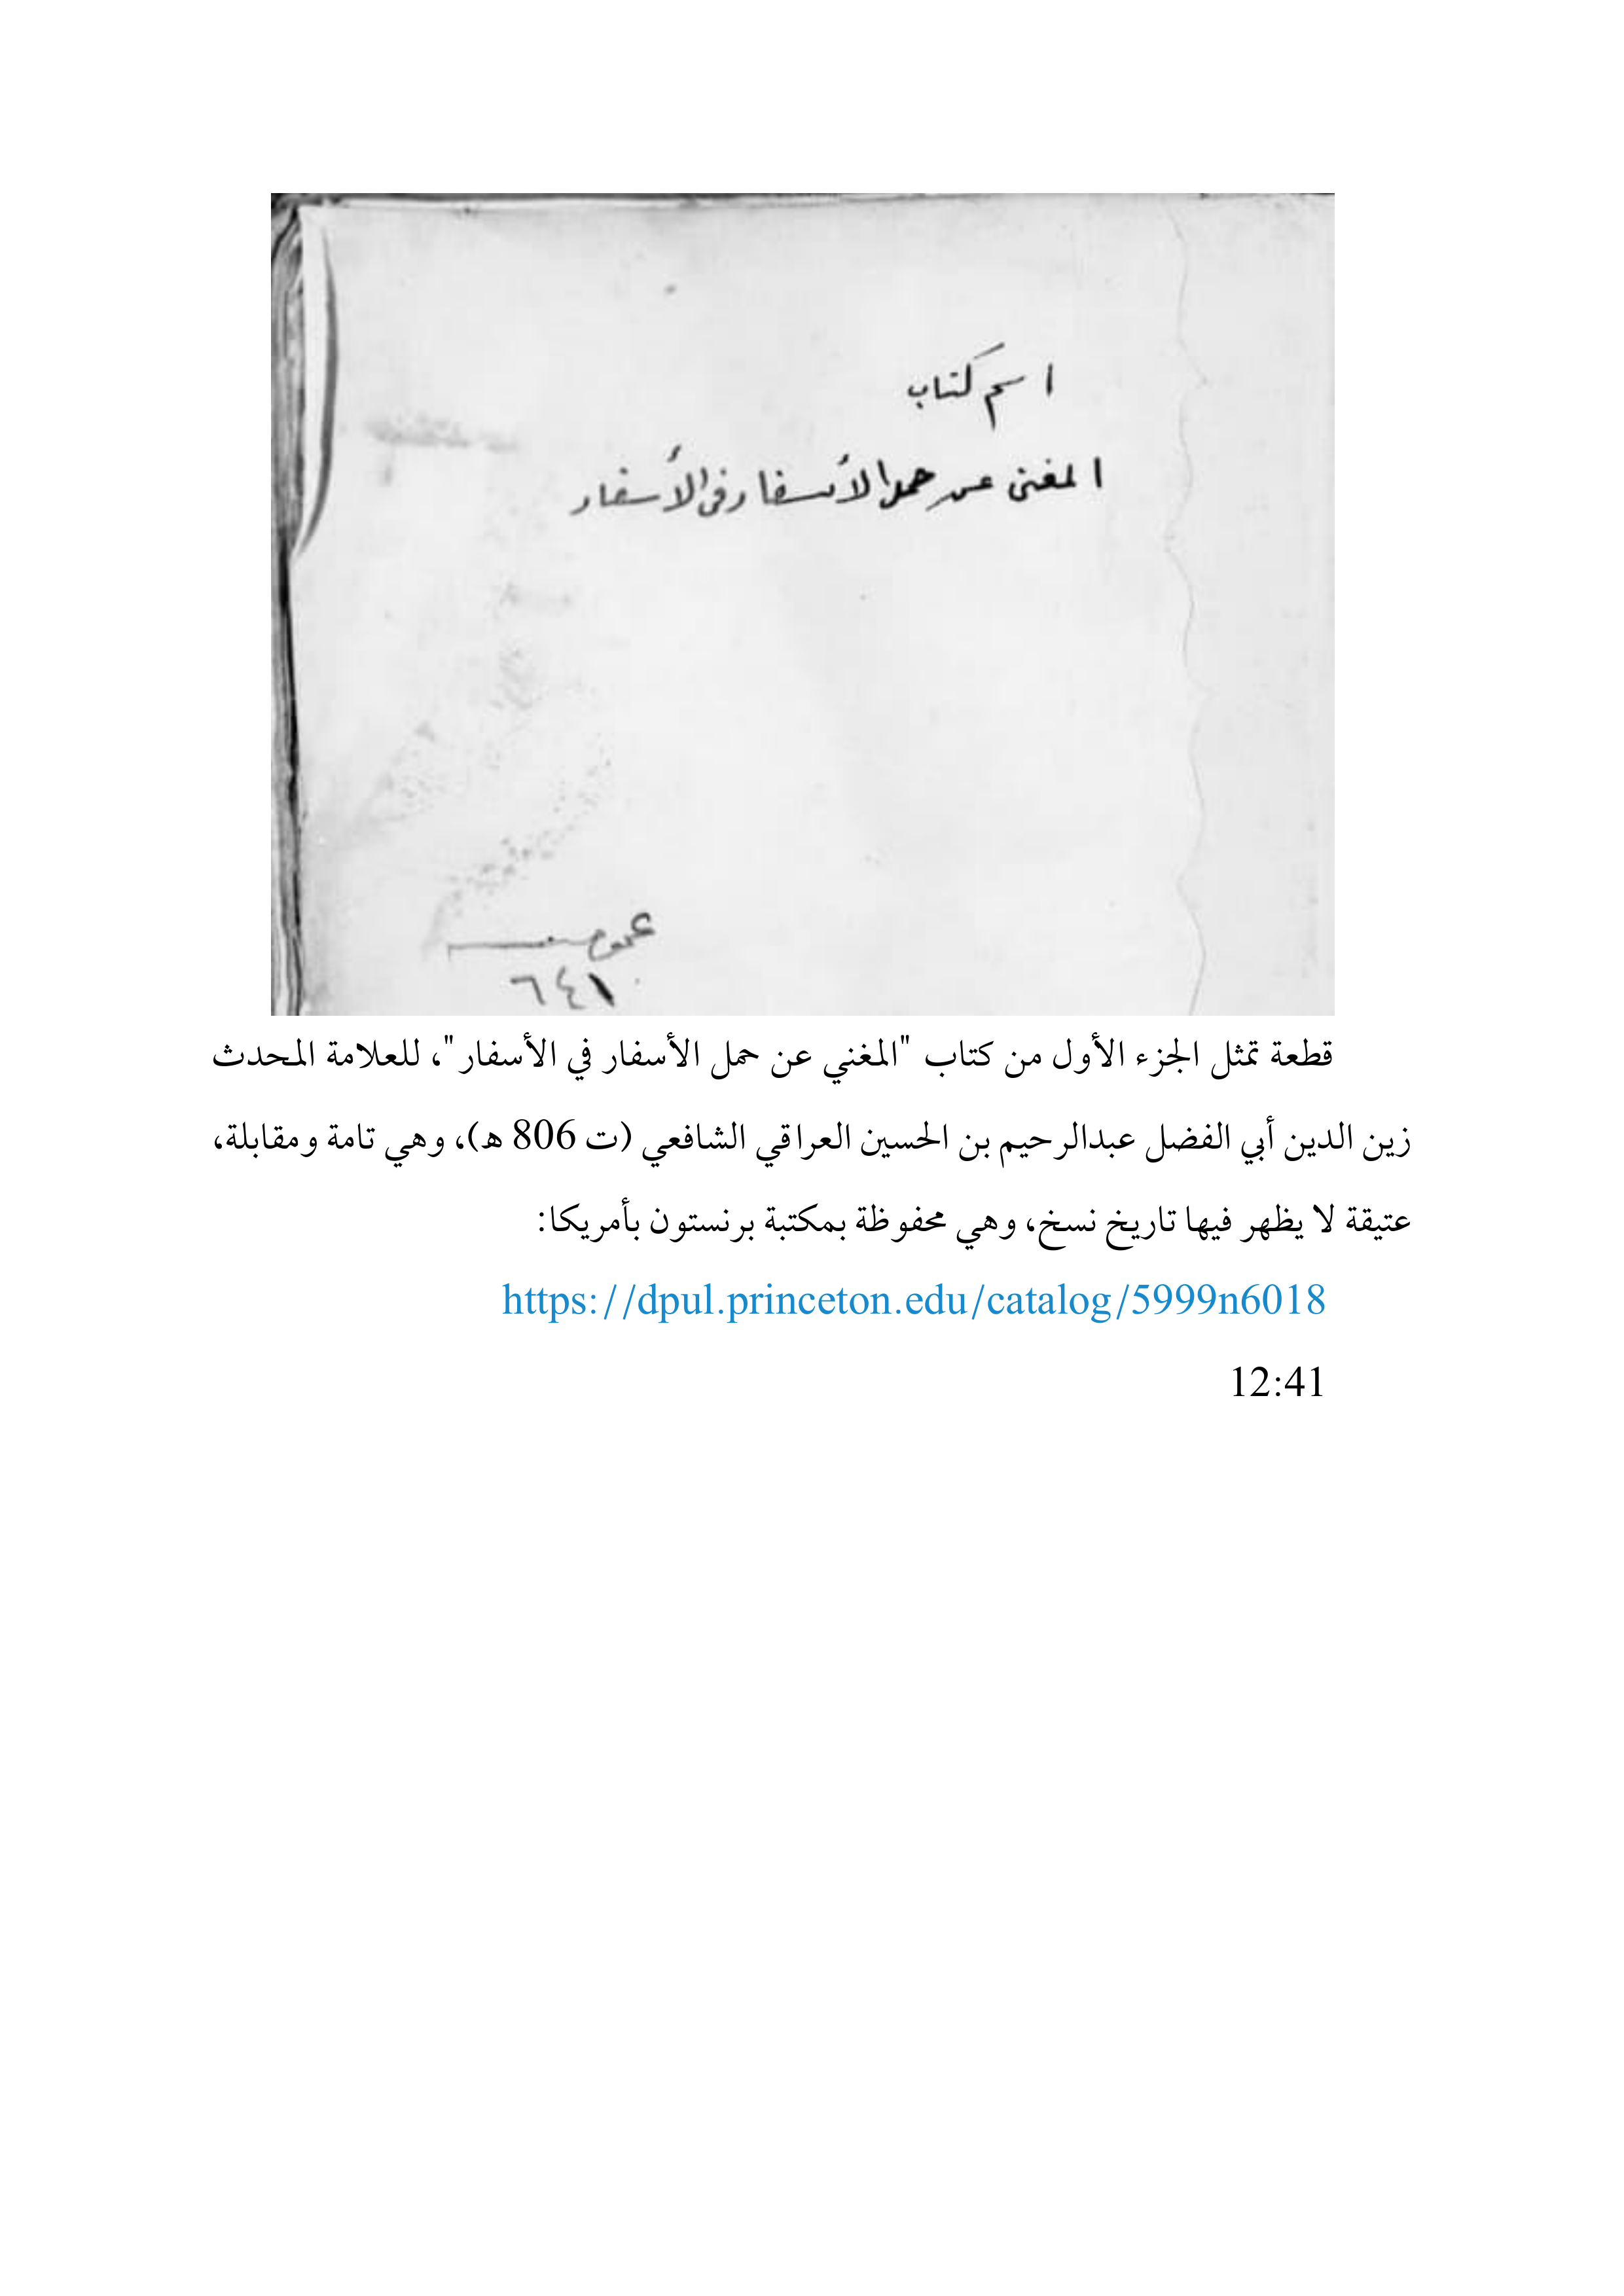 اسم كتاب
المغنى عن حمل الأسفار فى الأسفار
عمومى
٦٤١
قطعة تمثل الجزء الأول من كتاب "المغني عن حمل الأسفار في الأسفار"، للعلامة المحدث
زين الدين أبي الفضل عبدالرحيم بن الحسين العراقي الشافعي (ت 806 هـ)، وهي تامة ومقابلة،
عتيقة لا يظهر فيها تاريخ نسخ، وهي محفوظة بمكتبة برنستون بأمريكا:
https://dpul.princeton.edu/catalog/5999n6018
12:41